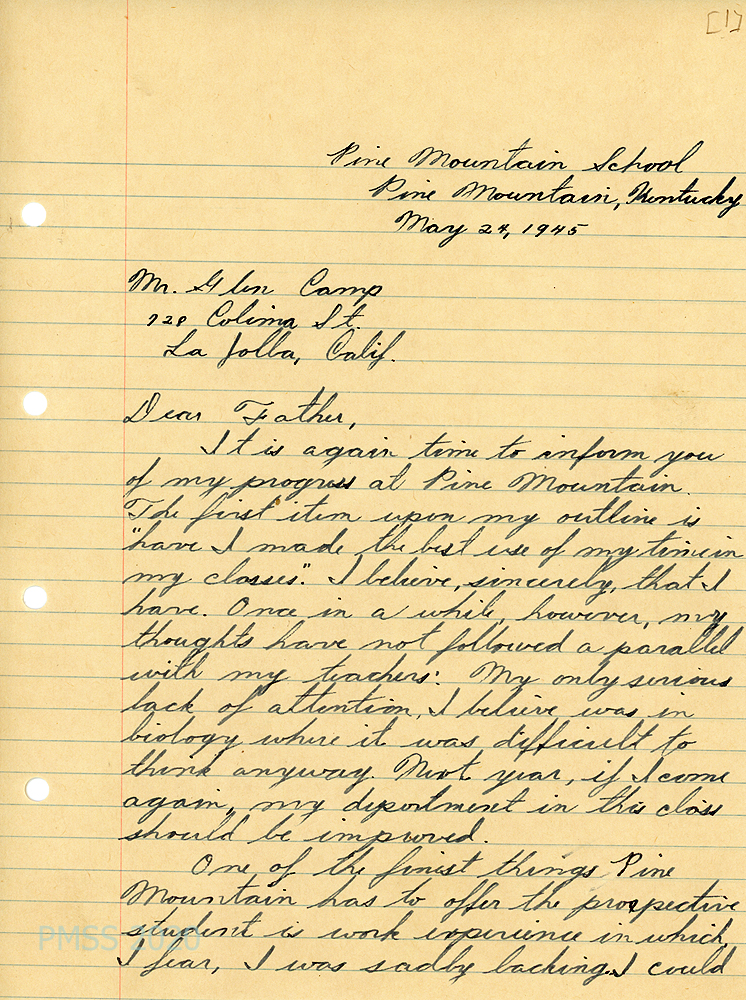 [1]
Pine Mountain School
Pine Mountain, Kentucky
May 24, 1945
Mr. Glen Camp
728 Colima St.
La Jolla, Calif.
Dear Father,
It is again time to inform you
of my progress at Pine Mountain.
The first item upon my outline is
"have I made the best use of my time in
my classes". I believe, sincerely, that I
have. Once in a while, however, my
thoughts have not followed a parallel
with my teachers: My only serious
lack of attention, I believe was in
biology where it was difficult to
think anyway. Next year, if I come
again, my deportment in this class
should be improved.
One of the finest things Pine
Mountain has to offer the prospective
student is work experience in which,
I fear, I was sadly lacking. I could
PMSS 2020